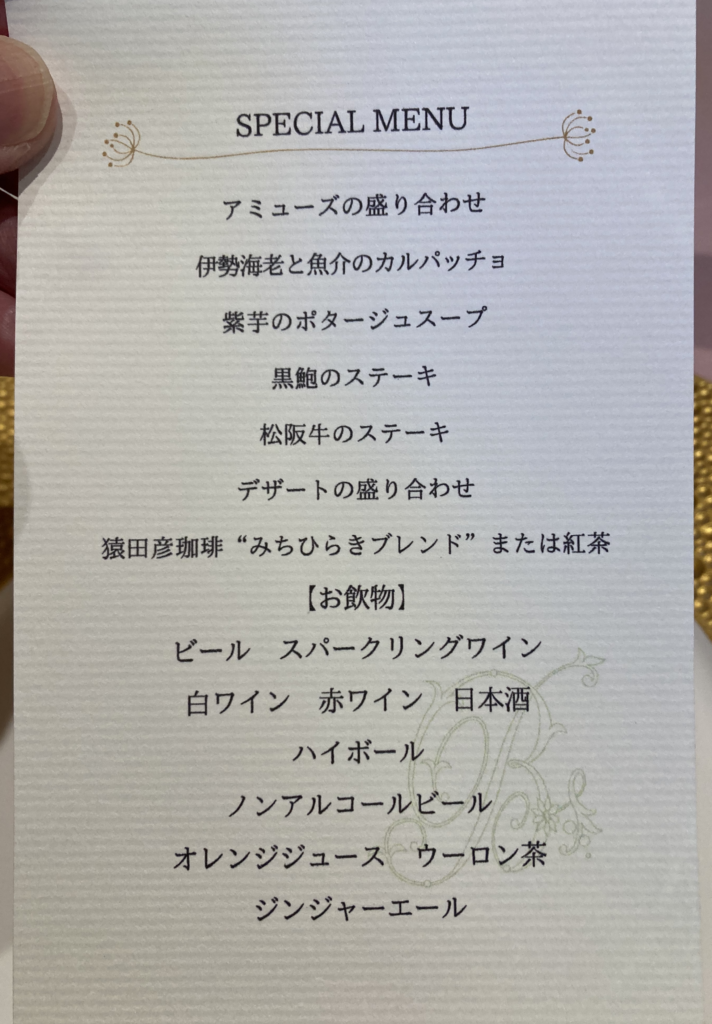 SPECIAL MENU
アミューズの盛り合わせ
伊勢海老と魚介のカルパッチョ
紫芋のポタージュスープ
黒鮑のステーキ
松阪牛のステーキ
デザートの盛り合わせ
猿田彦珈琲“みちひらきブレンド”または紅茶
【お飲物】
ビール　スパークリングワイン
白ワイン　赤ワイン　日本酒
ハイボール
ノンアルコールビール
オレンジジュース　ウーロン茶
ジンジャーエール